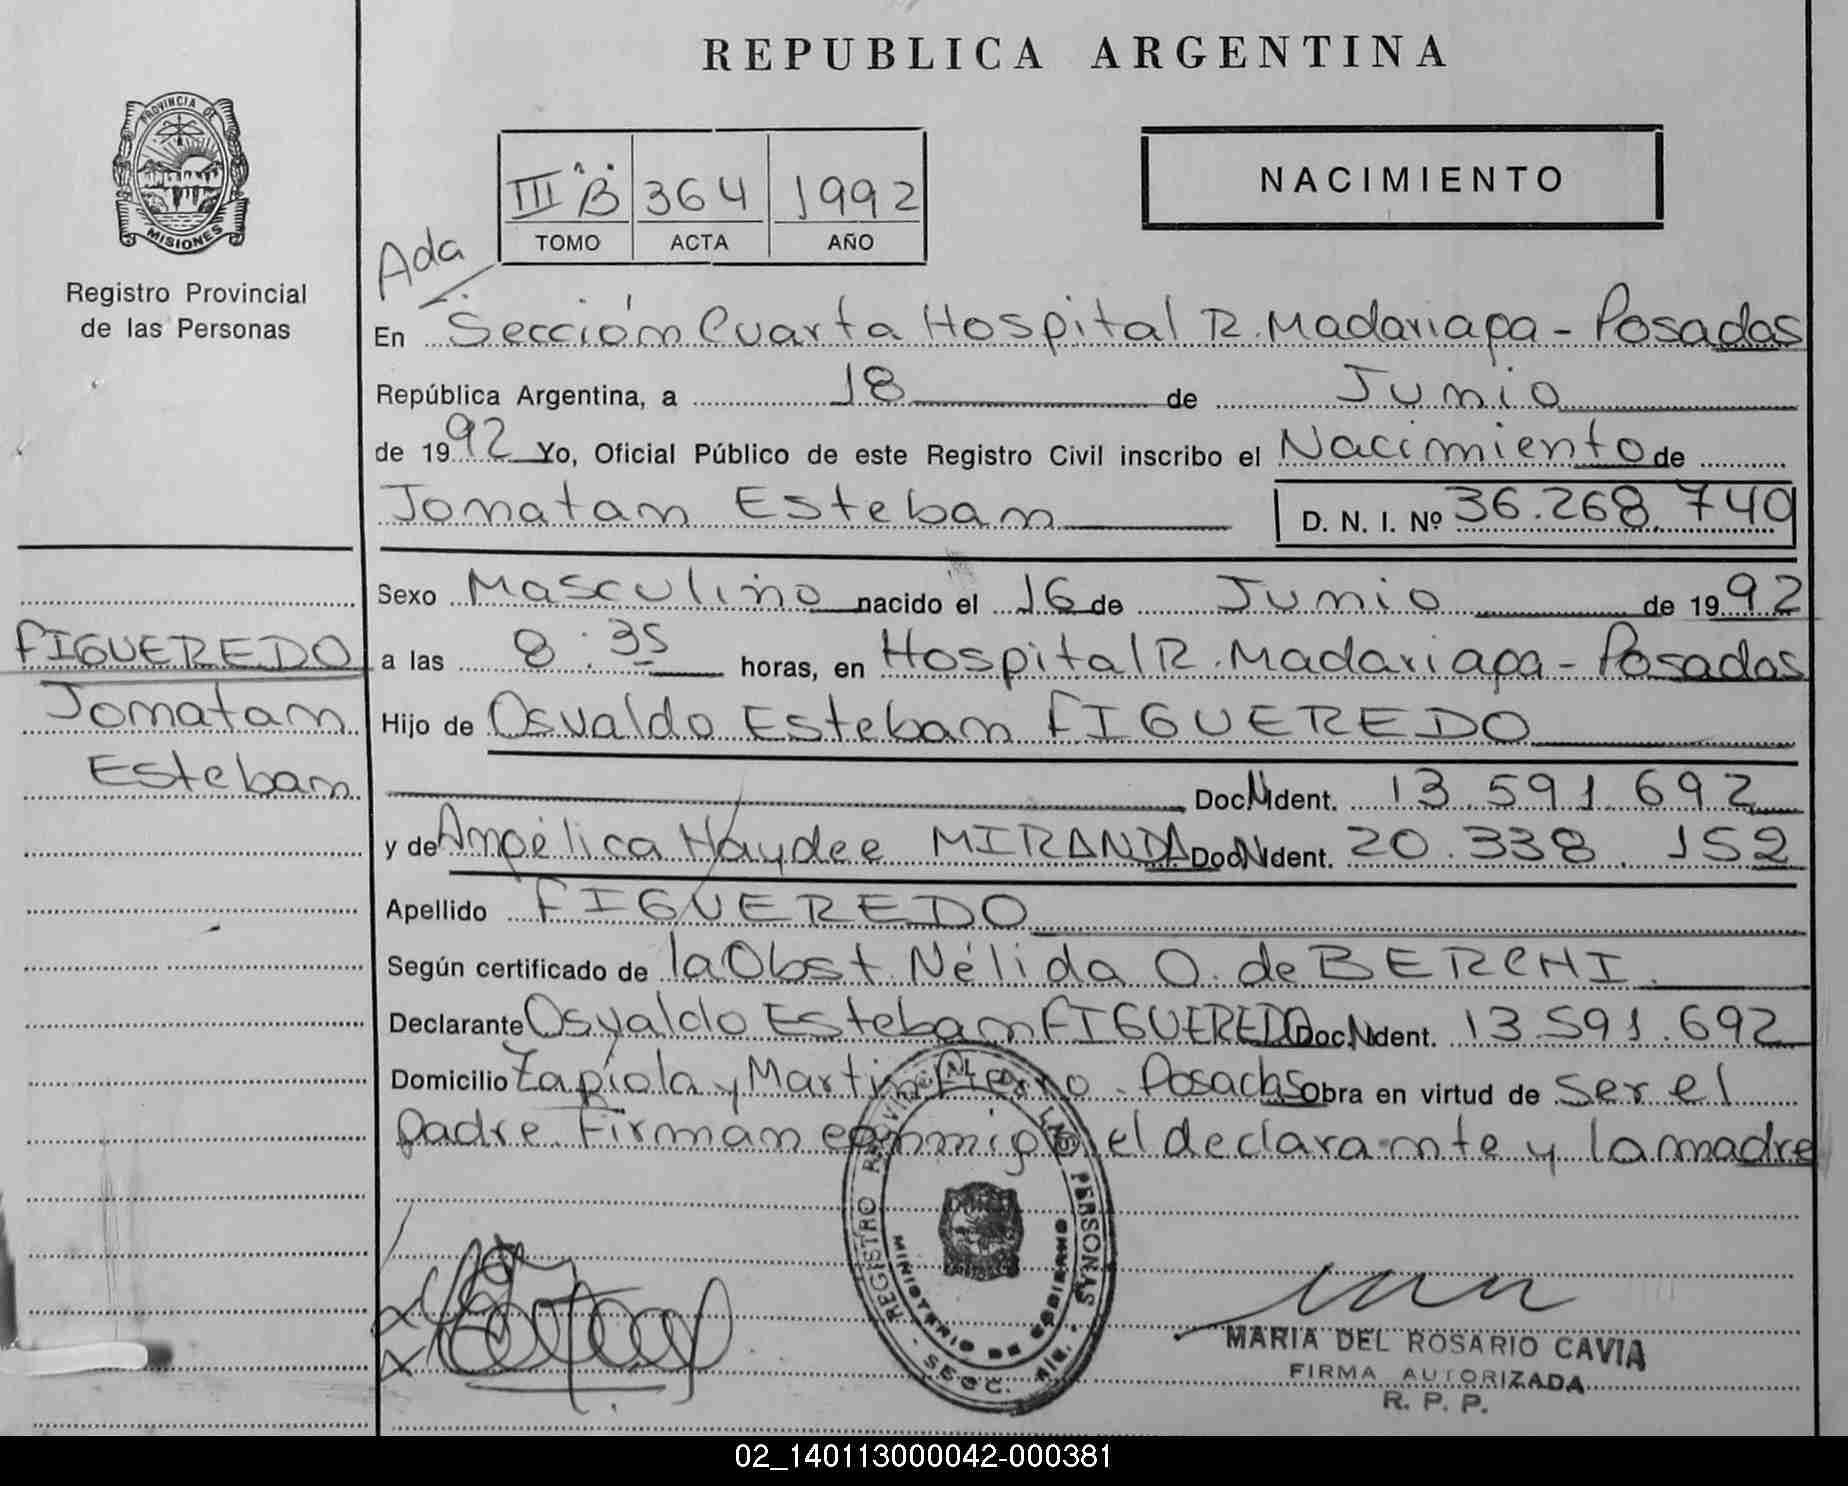 REPUBLICA ARGENTINA
PROVINCIA DE
MISIONES
Registro Provincial
de las Personas
III B 364 1992
TOMO ACTA AÑO
NACIMIENTO
Ada
En Sección Cuarta Hospital R. Madariaga - Posadas
República Argentina, a 18 de Junio
de 1992 Yo, Oficial Público de este Registro Civil inscribo el Nacimiento de
Jonatan Esteban D. N. I. Nº 36.268.740
Sexo Masculino nacido el 16 de Junio de 1992
FIGUEREDO
Jonatan
Esteban
a las 8:35 horas, en Hospital R. Madariaga - Posadas
Hijo de Osvaldo Esteban FIGUEREDO
Doc.N.Ident. 13.591.692
y de Angélica Haydee MIRANDA Doc.N.Ident. 20.338.152
Apellido FIGUEREDO
Según certificado de la Obst. Nélida O. de BERCHI.
Declarante Osvaldo Esteban FIGUEREDO Doc.N.Ident. 13.591.692
Domicilio Zapiola y Martin Fierro - Posadas Obra en virtud de ser el
padre. Firman conmigo el declarante y la madre
REGISTRO PROVINCIAL DE LAS PERSONAS
MINISTERIO DE GOBIERNO
SECC.
MARIA DEL ROSARIO CAVIA
FIRMA AUTORIZADA
R. P. P.
02_140113000042-000381